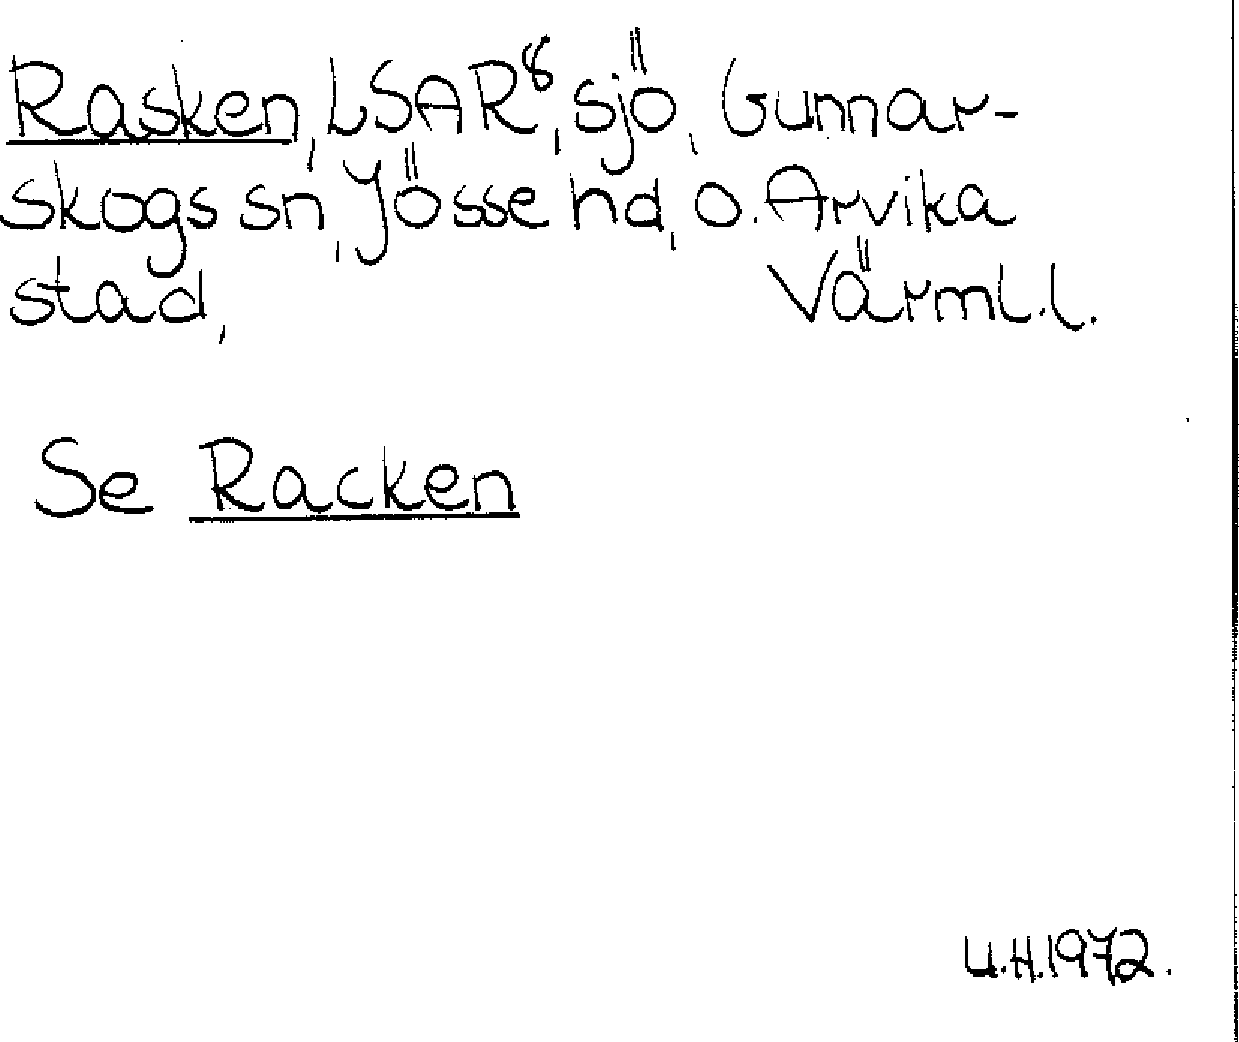 Rasken, LSAR⁸, sjö, Gunnar-
skogs sn, Jösse hd, o. Arvika
stad, Värml.l.
Se Racken
U.H.1972.